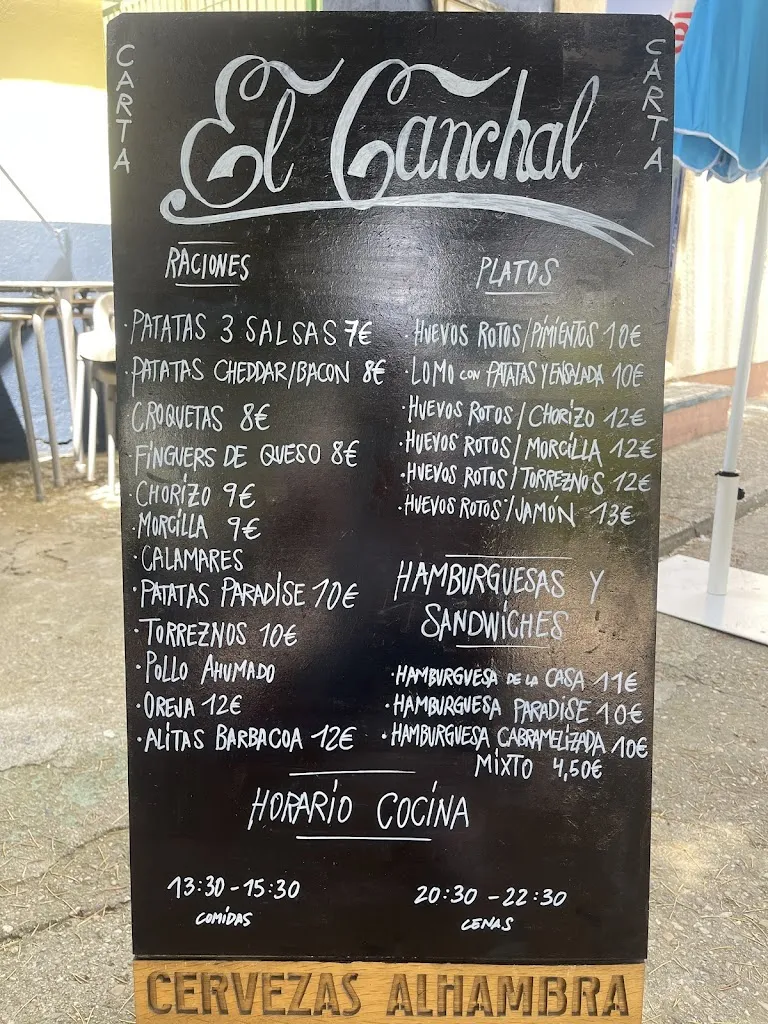 CARTA
CARTA
El Canchal
RACIONES
· PATATAS 3 SALSAS 7€
· PATATAS CHEDDAR/BACON 8€
CROQUETAS 8€
FINGUERS DE QUESO 8€
· CHORIZO 9€
· MORCILLA 9€
· CALAMARES
· PATATAS PARADISE 10€
· TORREZNOS 10€
· POLLO AHUMADO
· OREJA 12€
· ALITAS BARBACOA 12€
PLATOS
· HUEVOS ROTOS/PIMIENTOS 10€
· LOMO CON PATATAS Y ENSALADA 10€
· HUEVOS ROTOS/CHORIZO 12€
· HUEVOS ROTOS/MORCILLA 12€
· HUEVOS ROTOS/TORREZNOS 12€
· HUEVOS ROTOS/JAMÓN 13€
HAMBURGUESAS Y
SANDWICHES
· HAMBURGUESA DE LA CASA 11€
· HAMBURGUESA PARADISE 10€
· HAMBURGUESA CABRAMELIZADA 10€
MIXTO 4,50€
HORARIO COCINA
13:30-15:30
COMIDAS
20:30-22:30
CENAS
CERVEZAS ALHAMBRA